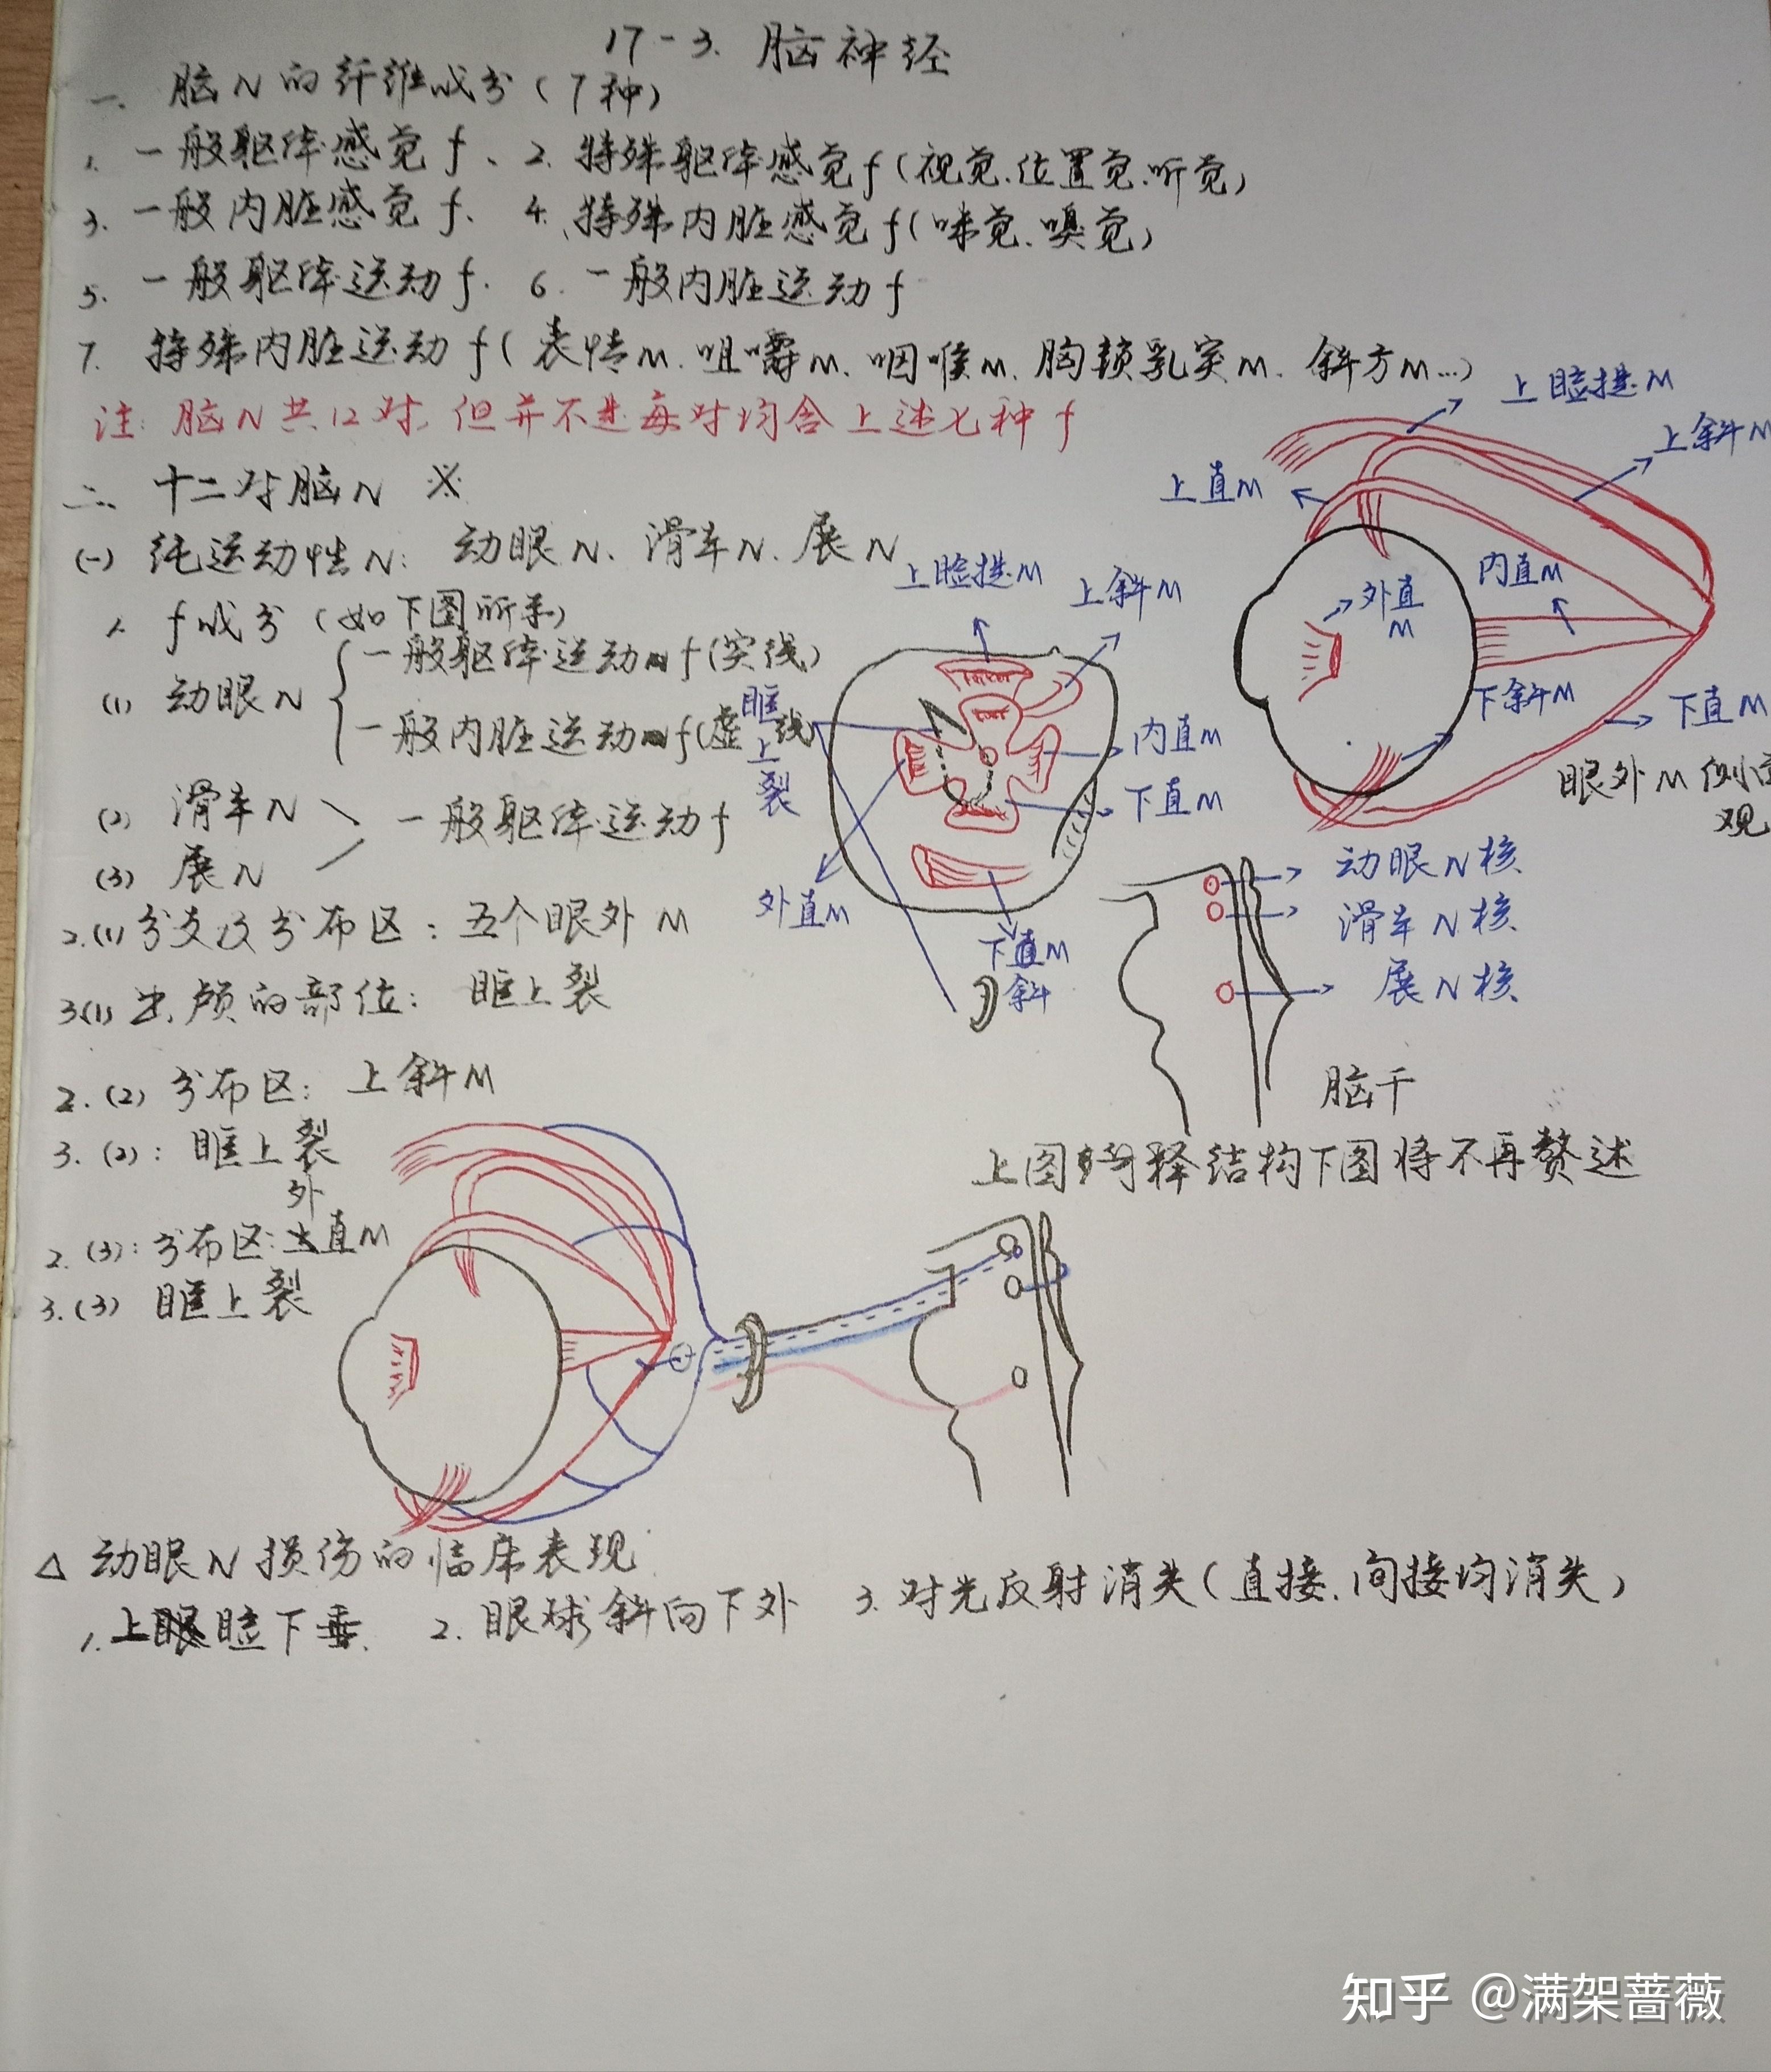 17-3. 脑神经
一. 脑N的纤维成分(7种)
1. 一般躯体感觉f、2. 特殊躯体感觉f(视觉.位置觉.听觉)
3. 一般内脏感觉f、4. 特殊内脏感觉f(味觉.嗅觉)
5. 一般躯体运动f. 6. 一般内脏运动f
7. 特殊内脏运动f(表情M.咀嚼M.咽喉M.胸锁乳突M.斜方M...)
注: 脑N共12对,但并不是每对均含上述七种f
二. 十二对脑N ※
(一) 纯运动性N: 动眼N、滑车N、展N
1. f成分(如下图所示)
(1) 动眼N
一般躯体运动f(实线)
一般内脏运动f(虚线)
(2) 滑车N
(3) 展N
一般躯体运动f
2.(1)分支及分布区: 五个眼外M
3.(1)出颅的部位: 眶上裂
2.(2) 分布区: 上斜M
3.(2): 眶上裂
2.(3): 分布区: 外直M
3.(3) 眶上裂
上睑提M
上斜M
上直M
内直M
外直M
下斜M
下直M
眼外M侧面观
上睑提M
上斜M
眶上裂
内直M
下直M
外直M
下斜M
动眼N核
滑车N核
展N核
脑干
上图解释结构下图将不再赘述
△ 动眼N损伤的临床表现:
1. 上睑下垂. 2. 眼球斜向下外 3. 对光反射消失(直接.间接均消失)
知乎 @满架蔷薇